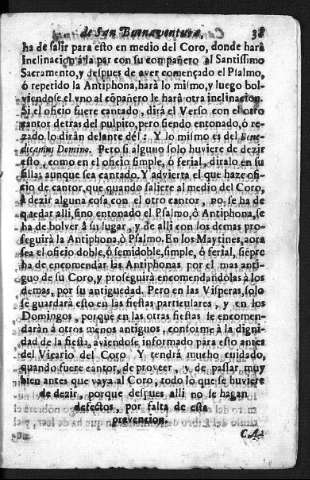 de San Buenaventura. 38
ha de salir para esto en medio del Coro, donde harà
Inclinacion à la par con su compañero al Santissimo
Sacramento, y despues de aver començado el Psalmo,
ò repetido la Antiphona, harà lo mismo, y luego bol-
viendose el uno al cõpañero le harà otra inclinacion.
Si el oficio fuere cantado, dirà el Verso con el otro
cantor detras del pulpito, pero siendo entonado, ò re-
zado lo diràn delante dèl: Y lo mismo es del Bene-
dicamus Domino. Pero si alguno solo huviere de dezir
esto, como en el oficio simple, ò ferial, diralo en su
silla; aunque sea cantado. Y advierta el que haze ofi-
cio de cantor, que quando saliere al medio del Coro,
à dezir alguna cosa con el otro cantor, no se ha de
quedar alli, sino entonado el Psalmo, ò Antiphona, se
ha de bolver à su lugar, y de alli con los demas pro-
seguirà la Antiphona, ò Psalmo. En los Maytines, aora
sea el oficio doble, ò semidoble, simple, ò ferial, siẽpre
ha de encomendar las Antiphonas por el mas anti-
guo de su Coro, y proseguirà encomendandolas à los
demas, por su antiguedad. Pero en las Visperas, solo
se guardarà esto en las fiestas particulares, y en los
Domingos, porque en las otras fiestas se encomen-
daràn à otros menos antiguos, conforme à la digni-
dad de la fiesta, aviendose informado para esto antes
del Vicario del Coro. Y tendrà mucho cuidado,
quando fuere cantor, de proveer, y de passar muy
bien antes que vaya al Coro, todo lo que se huviere
de dezir, porque despues alli no se hagan
defectos, por falta de esta
prevencion.